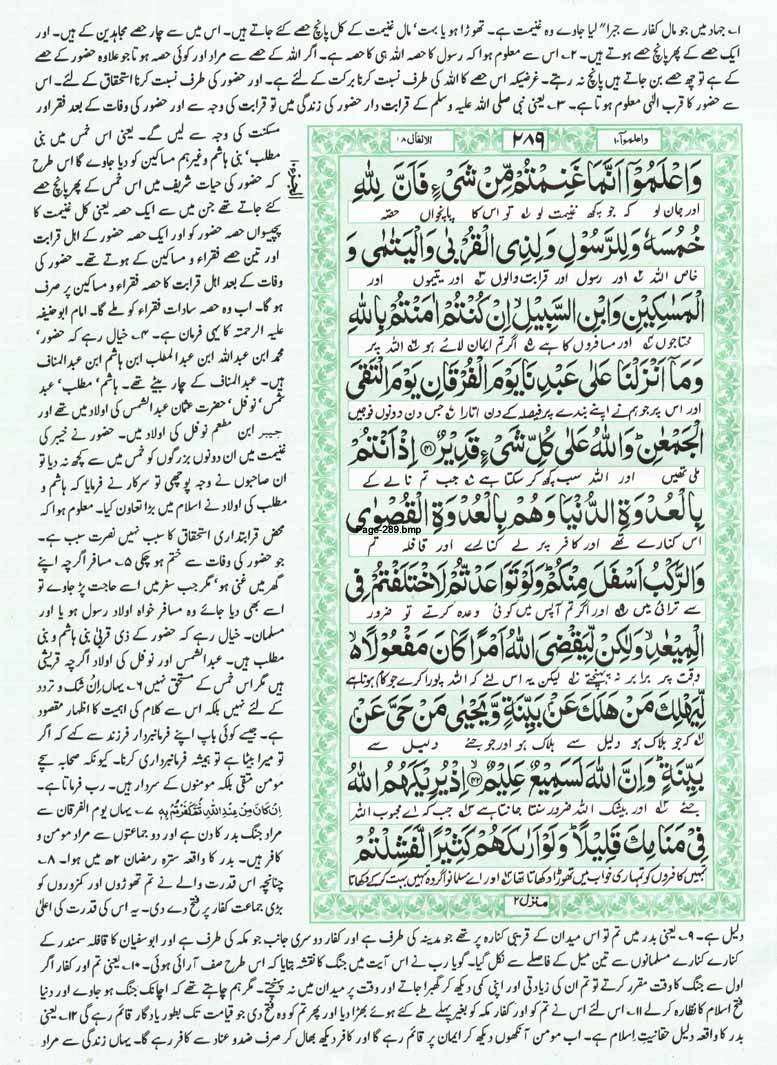 ۱۔ جہاد میں جو مال کفار سے جبراً لیا جاوے وہ غنیمت ہے۔ تھوڑا ہو یا بہت‘ مال غنیمت کے کل پانچ حصے کئے جاتے ہیں۔ اس میں سے چار حصے مجاہدین کے ہیں۔ اور
ایک حصے کے پھر پانچ حصے ہوتے ہیں۔ ۲۔ اس سے معلوم ہوا کہ رسول کا حصہ اللہ ہی کا حصہ ہے۔ اگر اللہ کے حصے سے مراد اور کوئی حصہ ہو تا جو علاوہ حضور کے حصے
کے ہے تو چھ حصے بن جاتے ہیں پانچ نہ رہتے۔ غرضیکہ اس حصے کا اللہ کی طرف نسبت کرنا برکت کے لئے ہے۔ اور حضور کی طرف نسبت کرنا استحقاق کے لئے۔ اس
سے حضور کا قرب الٰہی معلوم ہوتا ہے۔ ۳۔ یعنی نبی صلی اللہ علیہ وسلم کے قرابت دار حضور کی زندگی میں تو قرابت کی وجہ سے اور حضور کی وفات کے بعد فقر اور
مسکنت کی وجہ سے لیں گے۔ یعنی اس خمس میں بنی
مطلب‘ بنی ہاشم وغیرہم مساکین کو دیا جاوے گا اس طرح
کہ حضور کی حیات شریف میں اس خمس کے پھر پانچ حصے
کئے جاتے تھے جن میں سے ایک حصہ یعنی کل غنیمت کا
پچیسواں حصہ حضور کو اور ایک حصہ حضور کے اہل قرابت
اور تین حصے فقراء و مساکین کے ہوتے تھے۔ حضور کی
وفات کے بعد اہل قرابت کا حصہ فقراء و مساکین پر صرف
ہو گا۔ اب وہ حصہ سادات فقراء کو ملے گا۔ امام ابوحنیفہ
علیہ الرحمتہ کا یہی فرمان ہے۔ ۴۔ خیال رہے کہ حضور‘
محمد ابن عبداللہ ابن عبدالمطلب ابن ہاشم ابن عبدالمناف
ہیں۔ عبدالمناف کے چار بیٹے تھے۔ ہاشم‘ مطلب‘ عبد
شمس‘ نوفل‘ حضرت عثمان عبدالشمس کی اولاد میں تھے اور
جبیر ابن مطعم نوفل کی اولاد میں۔ حضور نے خیبر کی
غنیمت میں ان دونوں بزرگوں کو خمس میں سے کچھ نہ دیا تو
ان صاحبوں نے وجہ پوچھی تو سرکار نے فرمایا کہ ہاشم و
مطلب کی اولاد نے اسلام میں بڑا تعاون کیا۔ معلوم ہوا کہ
محض قرابتداری استحقاق کا سبب نہیں نصرت سبب ہے۔
جو حضور کی وفات سے ختم ہو چکی ۵۔ مسافر اگرچہ اپنے
گھر میں غنی ہو‘ مگر جب سفر میں اسے حاجت پڑ جاوے تو
اسے بھی دیا جائے وہ مسافر خواہ اولاد رسول ہو یا اور
مسلمان۔ خیال رہے کہ حضور کے ذی قربیٰ بنی ہاشم و بنی
مطلب ہیں۔ عبدالشمس اور نوفل کی اولاد اگرچہ قریشی
ہیں مگر اس خمس کے مستحق نہیں ۶۔ یہاں اِنْ شک و تردد
کے لئے نہیں بلکہ اس سے کلام کی اہمیت کا اظہار مقصود
ہے۔ جیسے کوئی باپ اپنے فرمانبردار فرزند سے کہے کہ اگر
تو میرا بیٹا ہے تو ہمیشہ فرمانبرداری کرنا۔ کیونکہ صحابہ سچے
مومن متقی بلکہ مومنوں کے سردار ہیں۔ رب فرماتا ہے۔
اِنْ کَانَ مِنْ عِنْدِ اللّٰہِ ثُمَّ کَفَرْتُمْ بِہٖ ۷۔ یہاں یوم الفرقان سے
مراد جنگ بدر کا دن ہے اور دو جماعتوں سے مراد مومن و
کافر ہیں۔ بدر کا واقعہ سترہ رمضان ۲ھ میں ہوا۔ ۸۔
چنانچہ اس قدرت والے نے تم تھوڑوں اور کمزوروں کو
بڑی جماعت کفار پر فتح دے دی۔ یہ اس کی قدرت کی اعلیٰ
واعلموآ۱۰
۲۸۹
الانفال ۸
وَاعْلَمُوْۤا اَنَّمَا غَنِمْتُمْ مِّنْ شَیْءٍ فَاَنَّ لِلّٰهِ
اور جان لو کہ جو کچھ غنیمت لو تو اس کا پانچواں حصّہ
خُمُسَهٗ وَلِلرَّسُوْلِ وَلِذِی الْقُرْبٰى وَالْیَتٰمٰى وَ
خاص اللہ اور رسول اور قرابت والوں اور یتیموں اور
الْمَسٰكِیْنِ وَابْنِ السَّبِیْلِ اِنْ كُنْتُمْ اٰمَنْتُمْ بِاللّٰهِ
محتاجوں اور مسافروں کا ہے اگر تم ایمان لائے ہو اللہ پر
وَمَاۤ اَنْزَلْنَا عَلٰى عَبْدِنَا یَوْمَ الْفُرْقَانِ یَوْمَ الْتَقَى
اور اس پر جو ہم نے اپنے بندے پر فیصلہ کے دن اتارا جس دن دونوں فوجیں
الْجَمْعٰنِ ؕ وَاللّٰهُ عَلٰى كُلِّ شَیْءٍ قَدِیْرٌ ﴿۴۱﴾ اِذْ اَنْتُمْ
ملی تھیں اور اللہ سب کچھ کر سکتا ہے جب تم نالے کے
بِالْعُدْوَةِ الدُّنْیَا وَهُمْ بِالْعُدْوَةِ الْقُصْوٰى
Page-289.bmp
اس کنارے تھے اور کافر پر لے کنارے اور قافلہ تم
وَالرَّكْبُ اَسْفَلَ مِنْكُمْ ؕ وَلَوْ تَوَاعَدْتُّمْ لَاخْتَلَفْتُمْ فِی
سے ترائی میں اور اگر تم آپس میں کوئی وعدہ کرتے تو ضرور
الْمِیْعٰدِ ۙ وَلٰكِنْ لِّیَقْضِیَ اللّٰهُ اَمْرًا كَانَ مَفْعُوْلًا ۙ۬
وقت پر برابر نہ پہنچتے لیکن یہ اس لئے کہ اللہ پورا کرے جو کام ہونا ہے
لِّیَهْلِكَ مَنْ هَلَكَ عَنْۢ بَیِّنَةٍ وَّیَحْیٰى مَنْ حَیَّ عَنْۢ
کہ جو ہلاک ہو دلیل سے ہلاک ہو اور جو جئے دلیل سے
بَیِّنَةٍ ؕ وَاِنَّ اللّٰهَ لَسَمِیْعٌ عَلِیْمٌ ﴿۴۲﴾ اِذْ یُرِیْكَهُمُ اللّٰهُ
جئے اور بیشک اللہ ضرور سنتا جانتا ہے جب کہ اے محبوب اللہ
فِیْ مَنَامِكَ قَلِیْلًا ؕ وَلَوْ اَرٰىكَهُمْ كَثِیْرًا لَّفَشِلْتُمْ
تمہیں کافروں کو تمہاری خواب میں تھوڑا دکھاتا تھا اور اے مسلمانو اگر وہ تمہیں بہت کر کے دکھاتا
منزل ۲
دلیل ہے۔ ۹۔ یعنی بدر میں تم تو اس میدان کے قریبی کنارہ پر تھے جو مدینہ کی طرف ہے اور کفار دوسری جانب جو مکہ کی طرف ہے اور ابوسفیان کا قافلہ سمندر کے
کنارے کنارے مسلمانوں سے تین میل کے فاصلے سے نکل گیا۔ گویا رب نے اس آیت میں جنگ کا نقشہ بتایا کہ اس طرح صف آرائی ہوئی۔ ۱۰۔ یعنی تم اور کفار اگر
اول سے جنگ کا وقت مقرر کرتے تو تم ان کی زیادتی اور اپنی کمی دیکھ کر گھبرا جاتے اور وقت پر میدان میں نہ پہنچتے۔ مگر ہم چاہتے تھے کہ اچانک جنگ ہو جاوے اور دنیا
فتح اسلام کا نظارہ کر لے ۱۱۔ اس لئے اس نے تم کو اور کفار مکہ کو بغیر پہلے طے کئے ہوئے بھڑا دیا اور پھر تم کو وہ فتح دی جو قیامت تک بطور یادگار قائم رہے گی ۱۲۔ یعنی
بدر کا واقعہ دلیل حقانیت اسلام ہے۔ اب مومن آنکھوں دیکھ کر ایمان پر قائم رہے گا اور کافر دیکھ بھال کر صرف ضد و عناد سے کافر رہے گا۔ یہاں زندگی سے مراد